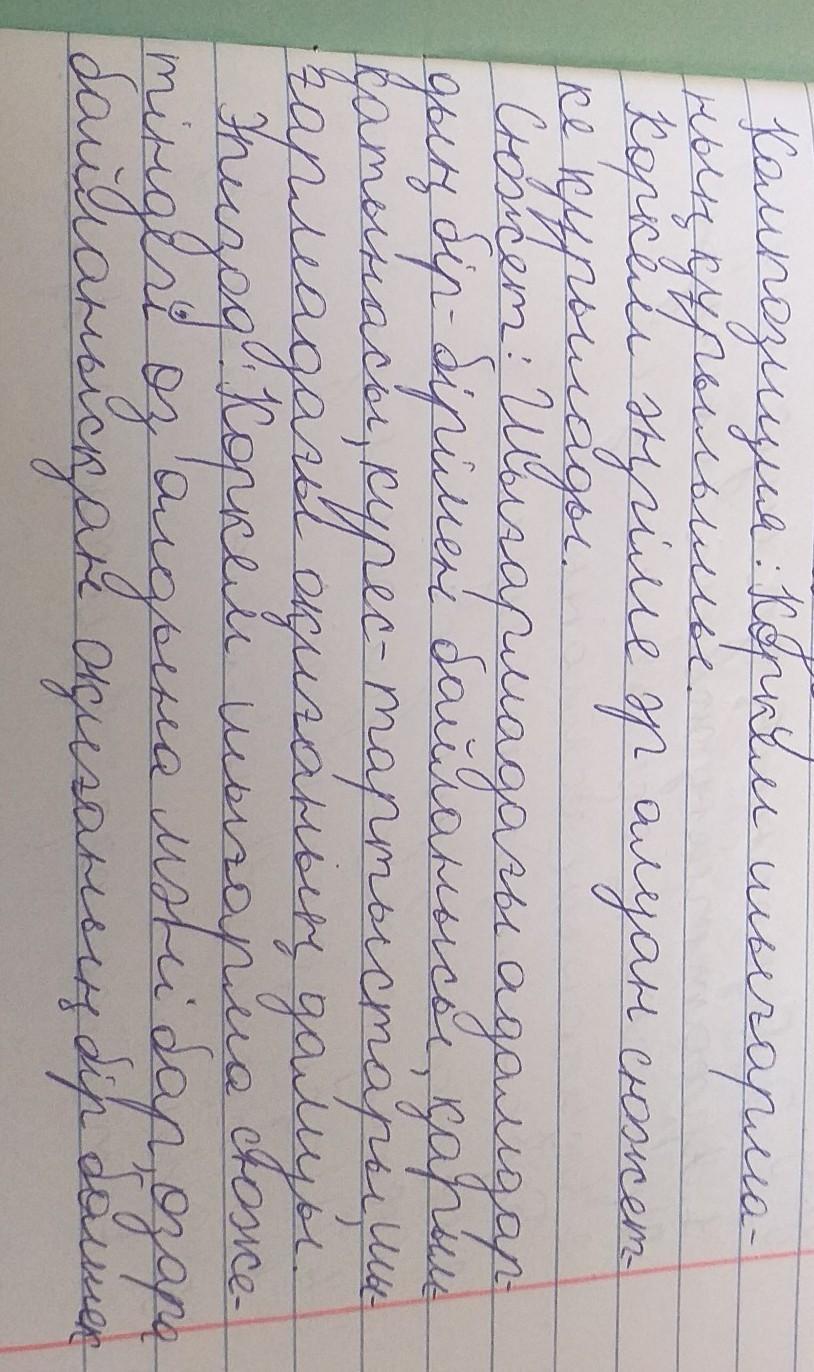 Композиция: Көркем шығарма-
ның құрылымы.
Көркем әңгіме әр алуан сюжет-
ке құрылады.
Сюжет: Шығармадағы адамдар-
дың бір-бірімен байланысы, қарым
қатынасы, күрес-тартыстары, шы-
ғармадағы оқиғаның дамуы.
Эпизод: Көркем шығарма сюже-
тіндегі өз алдына мәні бар, өзара
байланысқан оқиғаның бір бөлшек